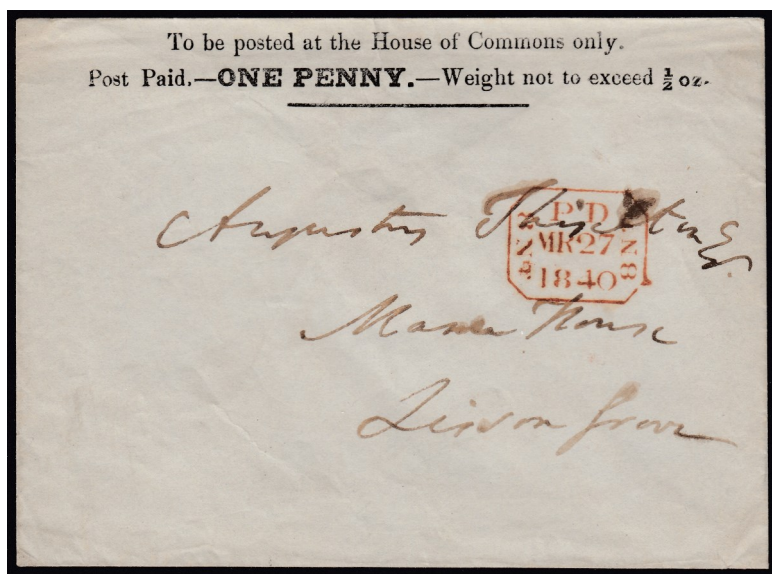 To be posted at the House of Commons only.
Post Paid.—ONE PENNY.—Weight not to exceed ½ oz.
Augustus Thiselton Esq.
P D
MR 27
1840
Manor House
Lisson Grove